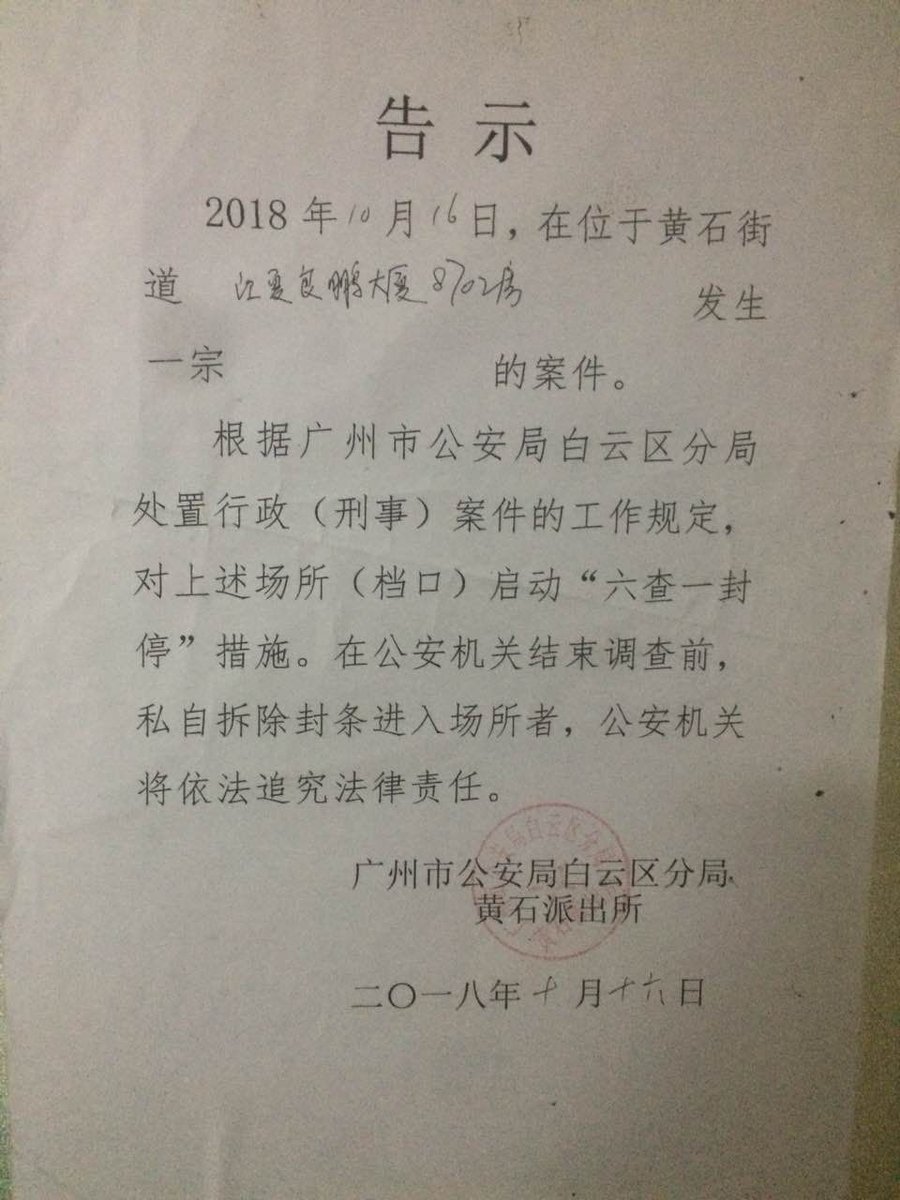 告示
2018年10月16日，在位于黄石街
道 江夏良鹏大厦8702房 发生
一宗 的案件。
根据广州市公安局白云区分局
处置行政（刑事）案件的工作规定，
对上述场所（档口）启动“六查一封
停”措施。在公安机关结束调查前，
私自拆除封条进入场所者，公安机关
将依法追究法律责任。
广州市公安局白云区分局
黄石派出所
二〇一八年十月十六日